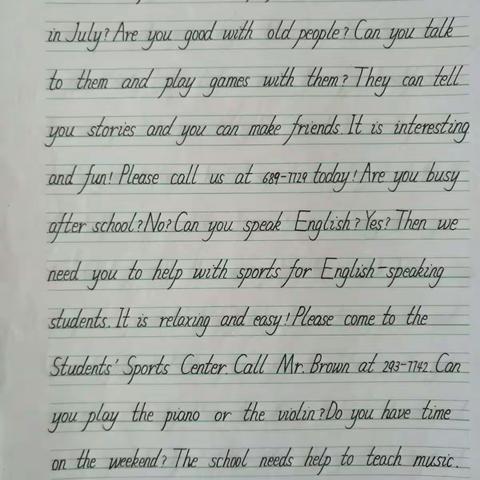 in July? Are you good with old people? Can you talk
to them and play games with them? They can tell
you stories and you can make friends. It is interesting
and fun! Please call us at 689-7729 today! Are you busy
after school? No? Can you speak English? Yes? Then we
need you to help with sports for English-speaking
students. It is relaxing and easy! Please come to the
Students' Sports Center. Call Mr. Brown at 293-7742. Can
you play the piano or the violin? Do you have time
on the weekend? The school needs help to teach music.